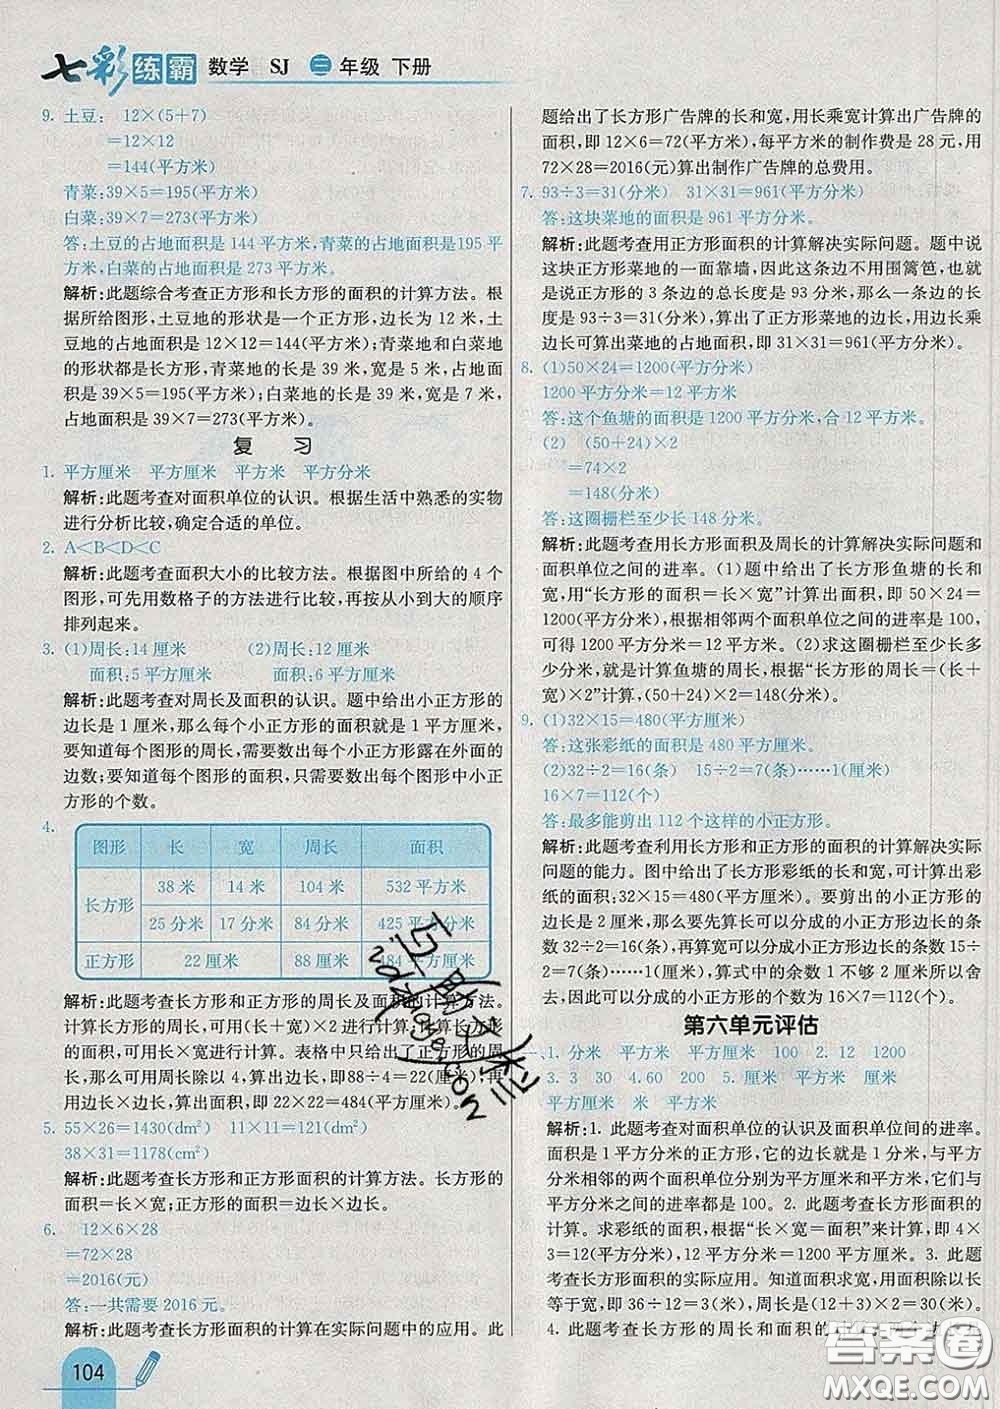 七彩练霸 数学 SJ 三年级 下册
9. 土豆: 12×(5+7)
=12×12
=144(平方米)
青菜:39×5=195(平方米)
白菜:39×7=273(平方米)
答:土豆的占地面积是 144 平方米,青菜的占地面积是195 平
方米,白菜的占地面积是 273 平方米。
解析:此题综合考查正方形和长方形的面积的计算方法。根
据所给图形,土豆地的形状是一个正方形,边长为 12 米,土
豆的占地面积是 12×12=144(平方米);青菜地和白菜地
的形状都是长方形,青菜地的长是 39 米,宽是 5 米,占地面
积是 39×5=195(平方米);白菜地的长是 39 米,宽是 7 米,
占地面积是 39×7=273(平方米)。
复 习
1. 平方厘米 平方厘米 平方米 平方分米
解析:此题考查对面积单位的认识。根据生活中熟悉的实物
进行分析比较,确定合适的单位。
2. A<B<D<C
解析:此题考查面积大小的比较方法。根据图中所给的 4 个
图形,可先用数格子的方法进行比较,再按从小到大的顺序
排列起来。
3. (1)周长:14 厘米 (2)周长:12 厘米
面积:5 平方厘米 面积:6 平方厘米
解析:此题考查对周长及面积的认识。题中给出小正方形的
边长是 1 厘米,那么每个小正方形的面积就是 1 平方厘米,
要知道每个图形的周长,需要数出每个小正方形露在外面的
边数;要知道每个图形的面积,只需要数出每个图形中小正
方形的个数。
4.
图形 长 宽 周长 面积
长方形 38 米 14 米 104 米 532 平方米
25 分米 17 分米 84 分米 425 平方分米
正方形 22 厘米 88 厘米 484 平方厘米
解析:此题考查长方形和正方形的周长及面积的计算方法。
计算长方形的周长,可用(长+宽)×2 进行计算,计算长方形
的面积,可用长×宽进行计算。表格中只给出了正方形的周
长,可用周长除以 4,算出边长,即88÷4=22(厘米),再
用边长×边长,算出面积,即 22×22=484(平方厘米)。
5. 55×26=1430(dm²) 11×11=121(dm²)
38×31=1178(cm²)
解析:此题考查长方形和正方形面积的计算方法。长方形的
面积=长×宽;正方形的面积=边长×边长。
6. 12×6×28
=72×28
=2016(元)
答:一共需要 2016 元。
解析:此题考查长方形面积的计算在实际问题中的应用。此
104
题给出了长方形广告牌的长和宽,用长乘宽计算出广告牌的
面积,即 12×6=72(平方米),每平方米的制作费是 28 元,用
72×28=2016(元)算出制作广告牌的总费用。
7. 93÷3=31(分米) 31×31=961(平方分米)
答:这块菜地的面积是 961 平方分米。
解析:此题考查用正方形面积的计算解决实际问题。题中说
这块正方形菜地的一面靠墙,因此这条边不用围篱笆,也就
是说正方形的 3 条边的总长度是 93 分米,那么一条边的长
度是 93÷3=31(分米),算出了正方形菜地的边长,用边长乘
边长可算出菜地的占地面积,即 31×31=961(平方分米)。
8. (1)50×24=1200(平方分米)
1200 平方分米=12 平方米
答:这个鱼塘的面积是 1200 平方分米,合 12 平方米。
(2) (50+24)×2
=74×2
=148(分米)
答:这圈栅栏至少长 148 分米。
解析:此题考查用长方形面积及周长的计算解决实际问题和
面积单位之间的进率。(1)题中给出了长方形鱼塘的长和
宽,用“长方形的面积=长×宽”计算出面积,即 50×24=
1200(平方分米),根据相邻两个面积单位之间的进率是 100,
可得 1200 平方分米=12 平方米。(2)求这圈栅栏至少长多
少分米,就是计算鱼塘的周长,根据“长方形的周长=(长+
宽)×2”计算,(50+24)×2=148(分米)。
9. (1)32×15=480(平方厘米)
答:这张彩纸的面积是 480 平方厘米。
(2)32÷2=16(条) 15÷2=7(条)……1(厘米)
16×7=112(个)
答:最多能剪出 112 个这样的小正方形。
解析:此题考查利用长方形和正方形的面积的计算解决实际
问题的能力。图中给出了长方形彩纸的长和宽,可计算出彩
纸的面积:32×15=480(平方厘米)。要剪出的小正方形的
边长是 2 厘米,那么要先算长可以分成的小正方形边长的条
数 32÷2=16(条),再算宽可以分成小正方形边长的条数 15÷
2=7(条)……1(厘米),算式中的余数 1 不够 2 厘米所以舍
去,因此可以分成的小正方形的个数为 16×7=112(个)。
第六单元评估
一、1. 分米 平方米 平方厘米 100 2. 12 1200
3. 3 30 4. 60 200 5. 厘米 平方米 厘米
平方厘米 米 平方米
解析:1. 此题考查对面积单位的认识及面积单位间的进率。
面积是 1 平方分米的正方形,它的边长就是 1 分米,与平方
分米相邻的两个面积单位分别为平方厘米和平方米,它们与
平方分米之间的进率都是 100。2. 此题考查长方形面积的
计算。求彩纸的面积,根据“长×宽=面积”来计算,即 4×
3=12(平方分米),12 平方分米=1200 平方厘米。3. 此题
考查长方形面积的实际应用。知道面积求宽,用面积除以长
等于宽,即 36÷12=3(米),周长是(12+3)×2=30(米)。
4. 此题考查长方形的周长和面积的
答案圈
MXQE.COM